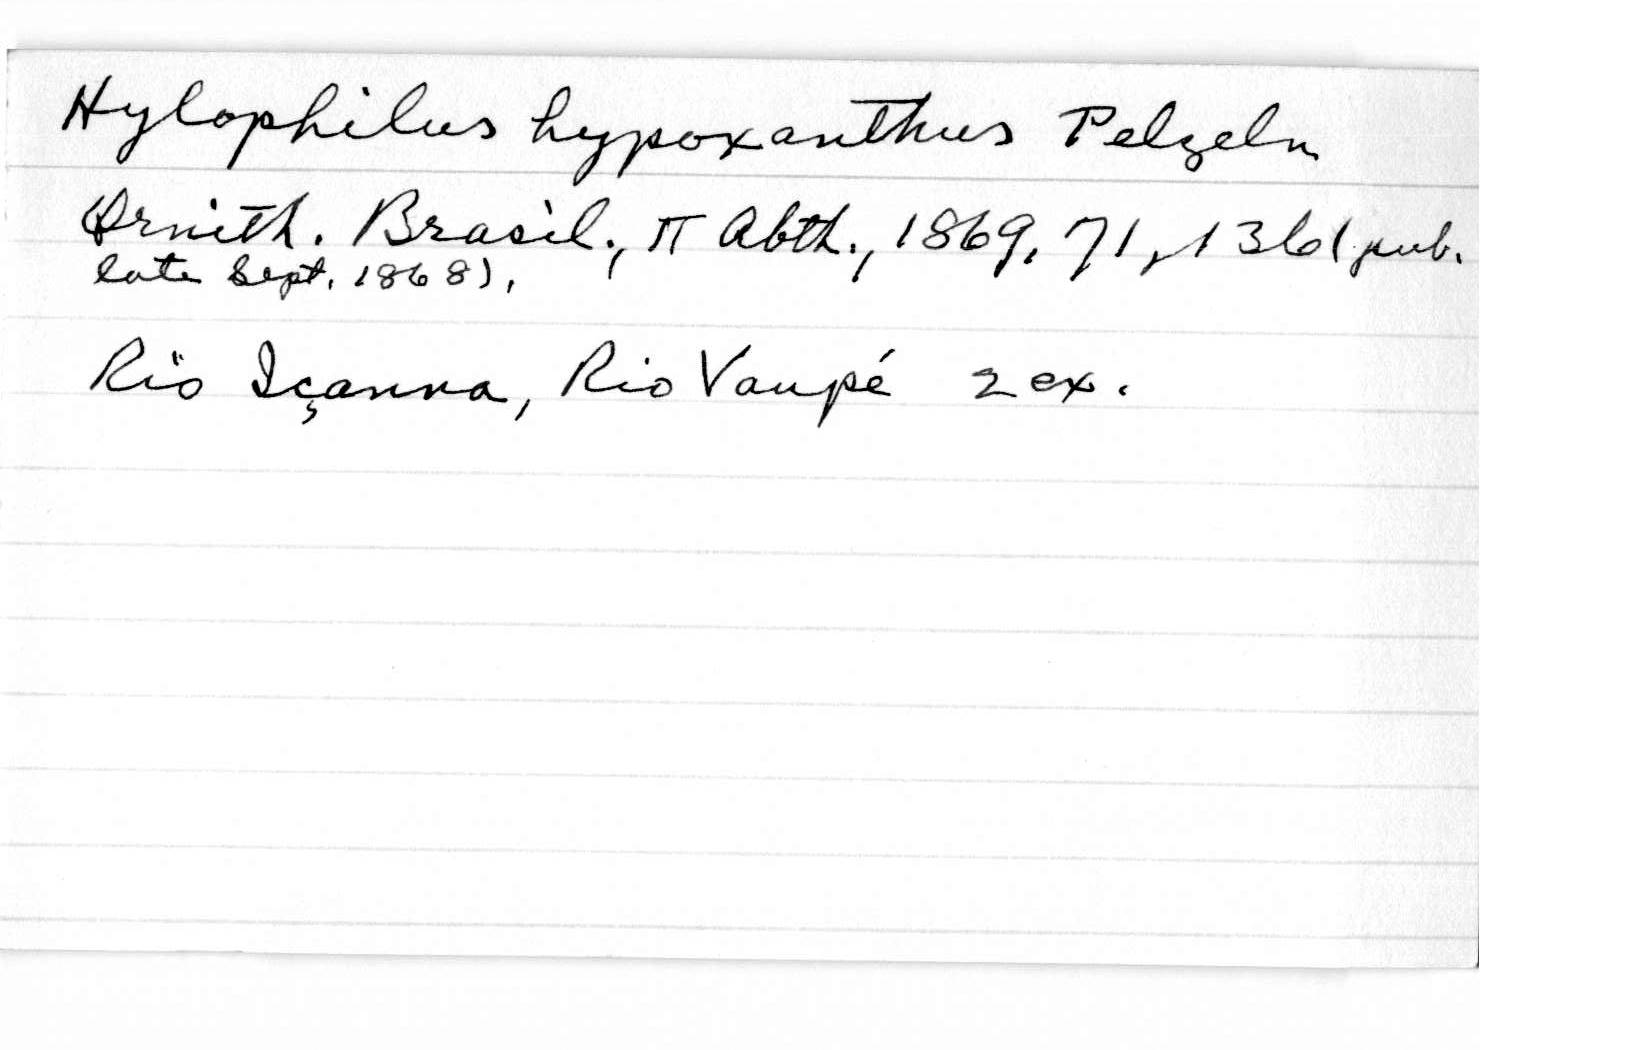 Hylophilus hypoxanthus Pelzeln
Ornith. Brasil., II Abth., 1869, 71, 136 (pub.
late Sept. 1868).
Rio Içanna, Rio Vaupé 2 ex.